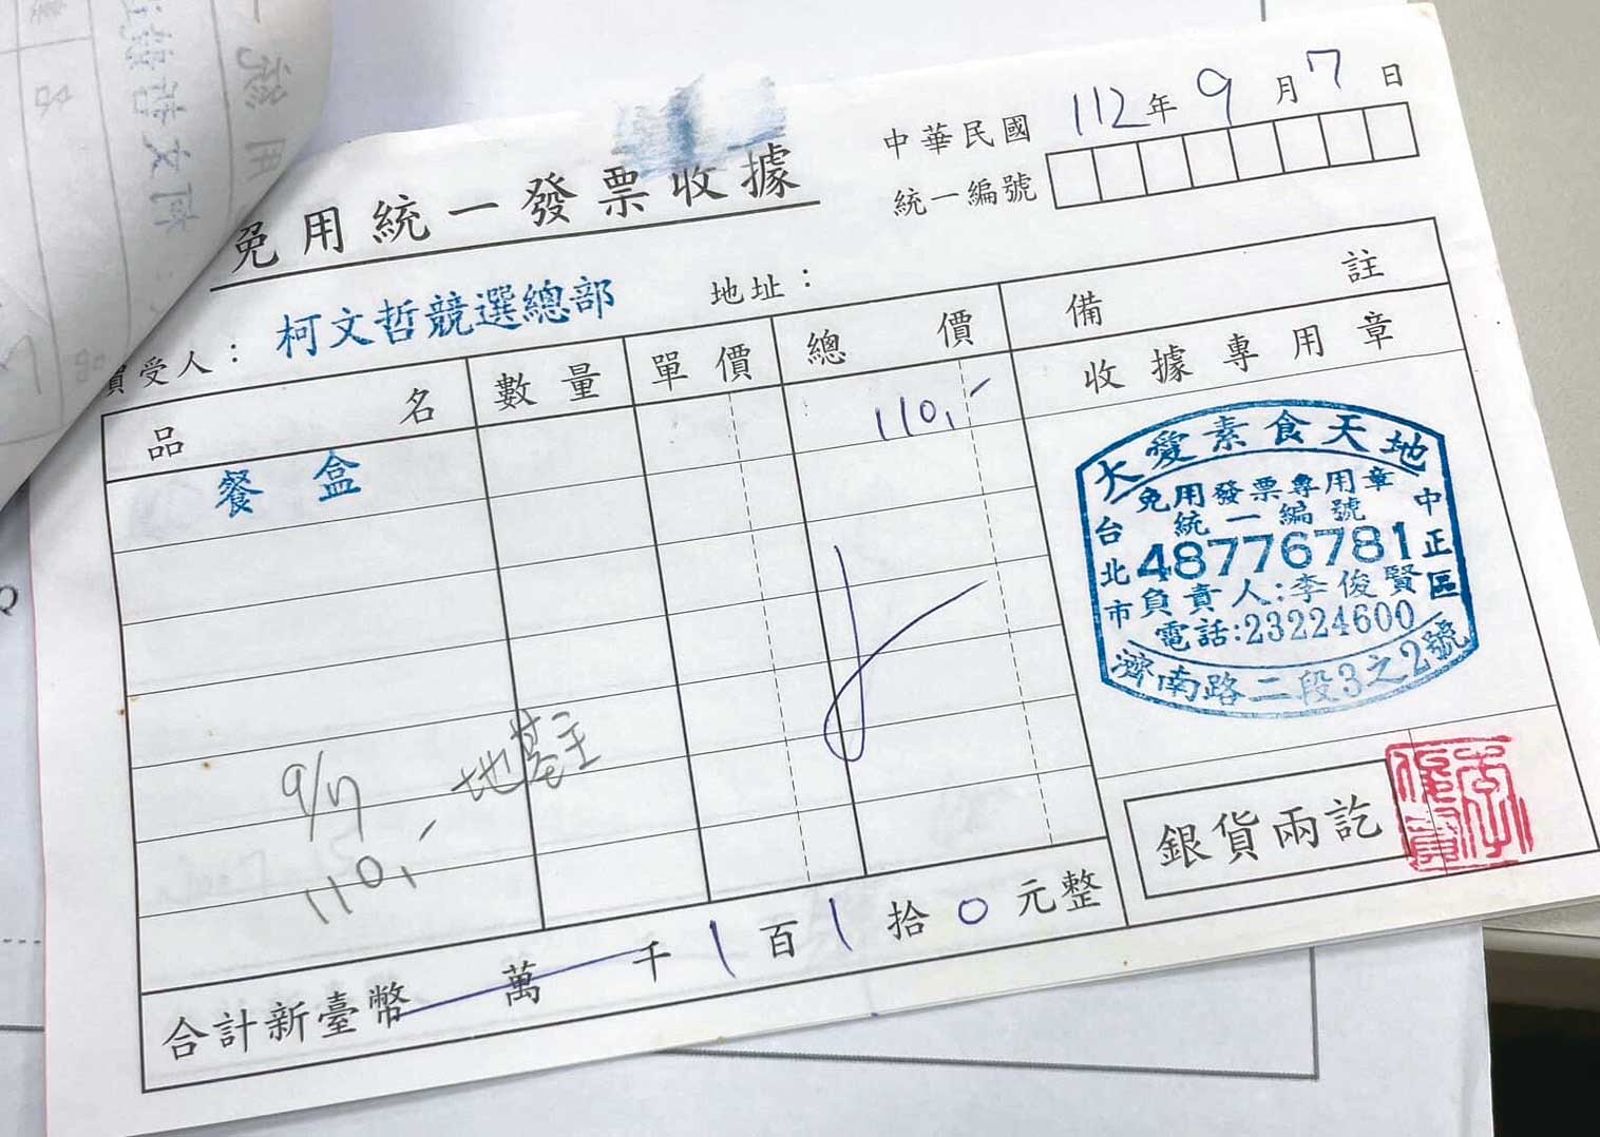 免用統一發票收據
中華民國 112年 9月 7日
統一編號
買受人：柯文哲競選總部 地址：
品名 數量 單價 總價 備註
收據專用章
餐盒 110,-
大愛素食天地
免用發票專用章
統一編號
48776781
負責人:李俊賢
電話:23224600
台北市
中正區
濟南路二段3之2號
9/7 地基主
110,-
銀貨兩訖
合計新臺幣 萬 千 1 百 1 拾 0 元整